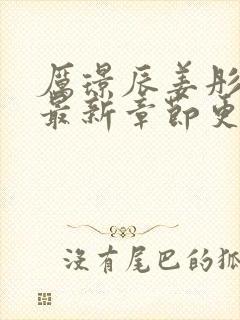 厲璟辰姜彤
最新章節更
沒有尾巴的狐